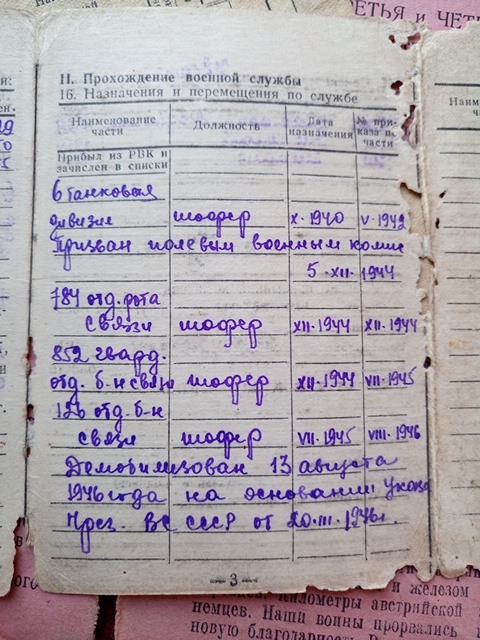 ЕТЬЯ и ЧЕТ
II. Прохождение военной службы
16. Назначения и перемещения по службе
Наименование части Должность Дата назначения № приказа по части
Прибыл из РВК и зачислен в списки
6 танковая
дивизия шофер X·1940 V·1942
Призван полевым военным комис
5·XII·1944
784 отд. рота
связи шофер XII·1944 XII·1944
852 гвард.
отд. б-н связи шофер XII·1944 VII·1945
126 отд. б-н
связи шофер VII·1945 VIII·1946
Демобилизован 13 августа
1946 года на основании указа
През. ВС СССР от 20·III·1946г.
— 3 —
и железом
километры австрийской
немцев. Наши воины прорвались
новую благодарность